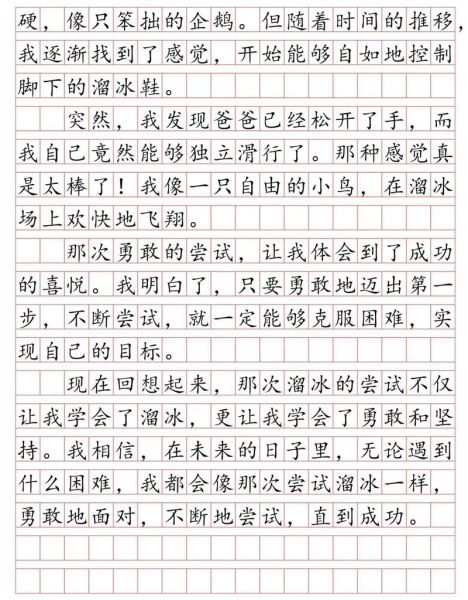 硬，像只笨拙的企鹅。但随着时间的推移，
我逐渐找到了感觉，开始能够自如地控制
脚下的溜冰鞋。
突然，我发现爸爸已经松开了手，而
我自己竟然能够独立滑行了。那种感觉真
是太棒了！我像一只自由的小鸟，在溜冰
场上欢快地飞翔。
那次勇敢的尝试，让我体会到了成功
的喜悦。我明白了，只要勇敢地迈出第一
步，不断尝试，就一定能够克服困难，实
现自己的目标。
现在回想起来，那次溜冰的尝试不仅
让我学会了溜冰，更让我学会了勇敢和坚
持。我相信，在未来的日子里，无论遇到
什么困难，我都会像那次尝试溜冰一样，
勇敢地面对，不断地尝试，直到成功。